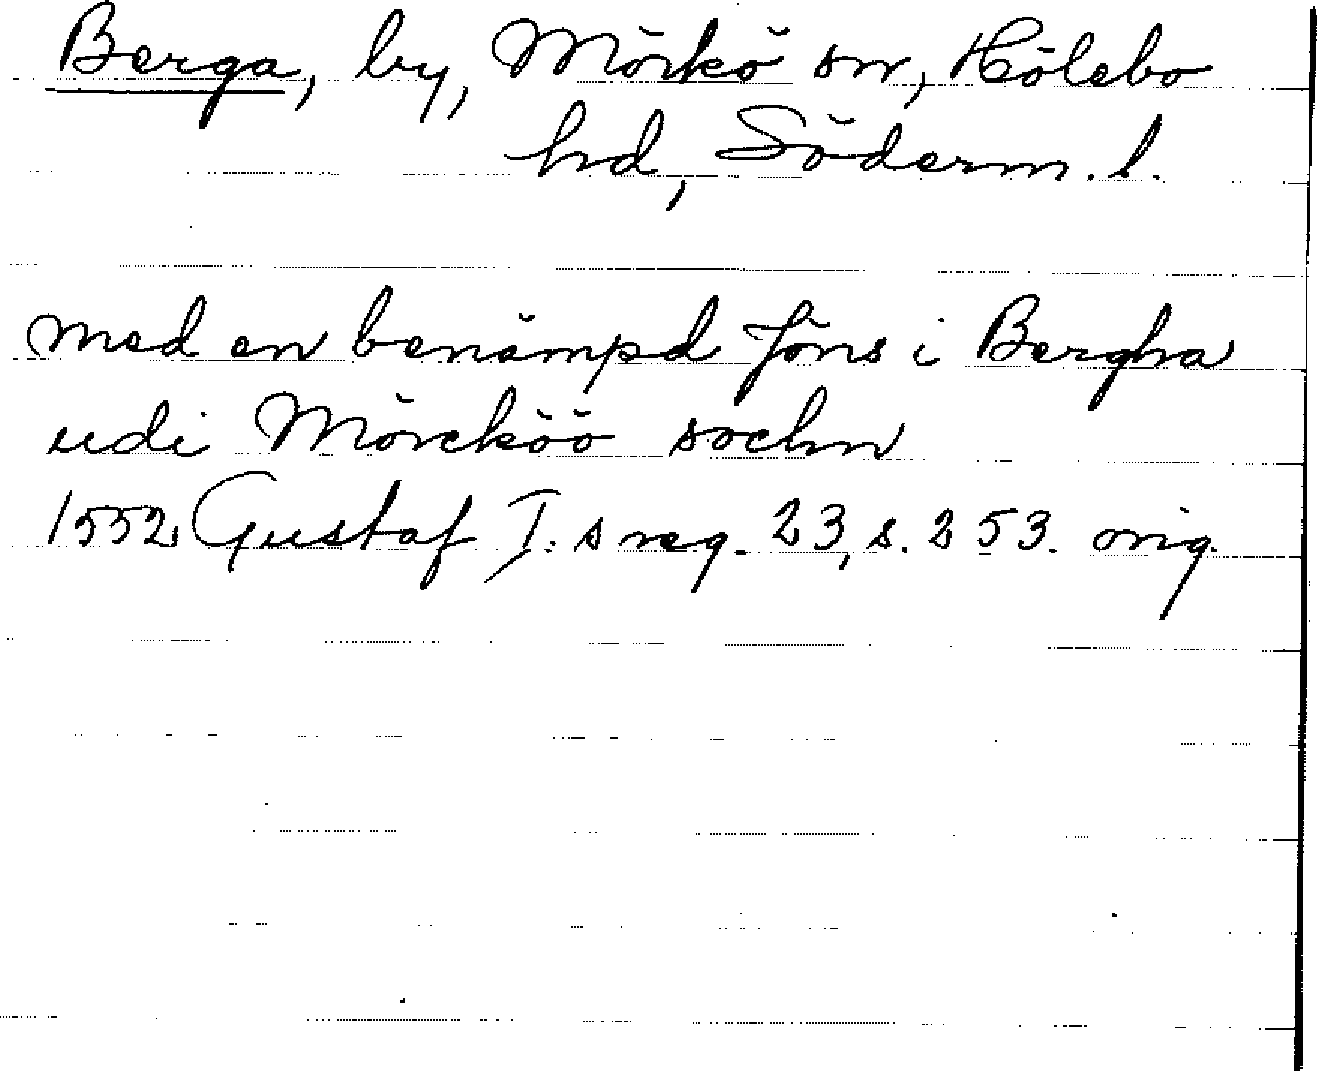 Berga, by, Mörkö sn, Hölebo
hd, Söderm. l.
med en benämpd Jöns i Bergha
udi Mörcköö sochn
1552 Gustaf I.s reg. 23, s. 253. orig.